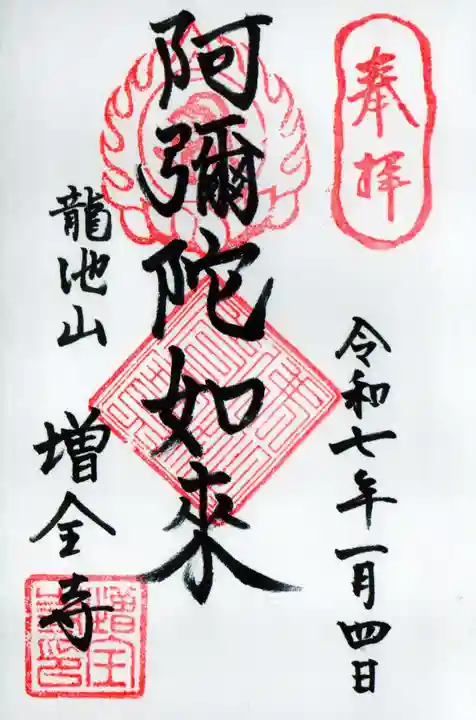 奉拝
令和七年一月四日
阿彌陀如来
龍池山
増全寺